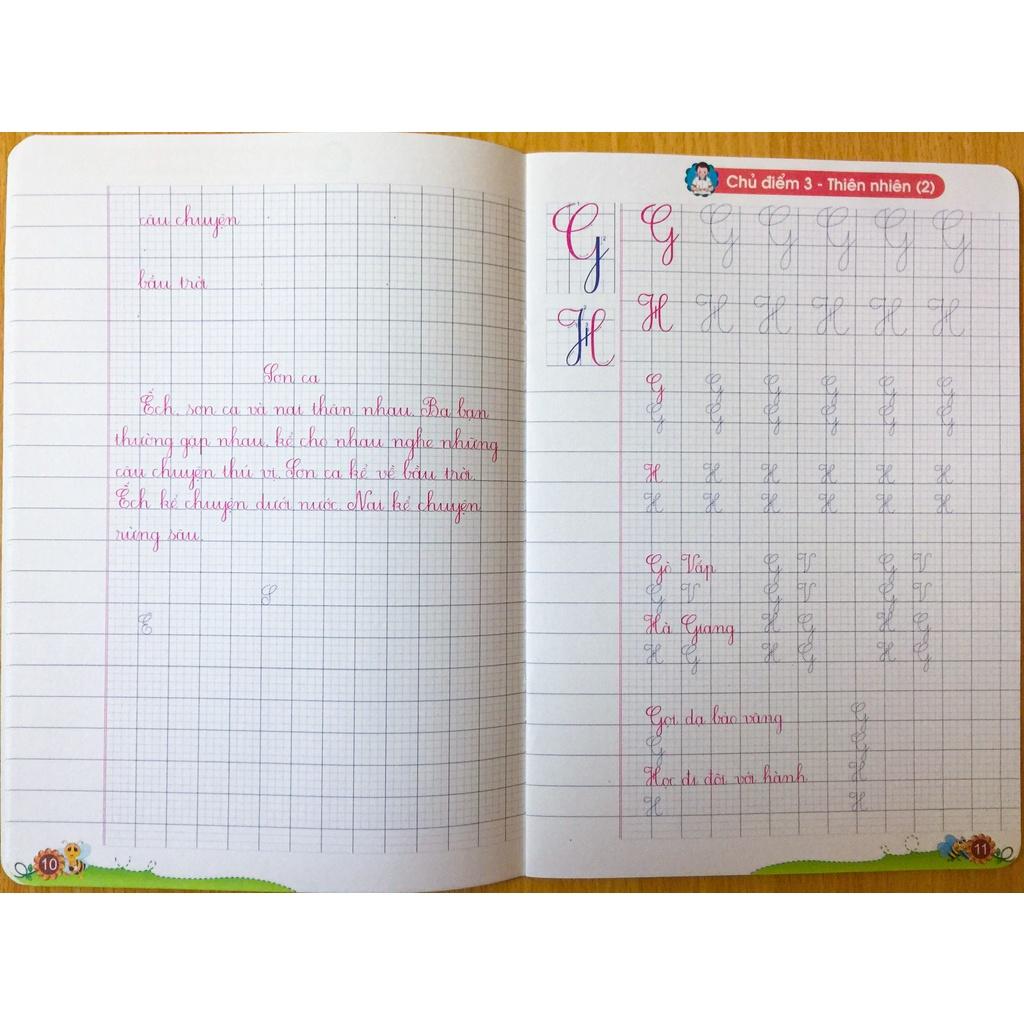 câu chuyện
bầu trời
Sơn ca
Ếch, sơn ca và nai thân nhau. Ba bạn
thường gặp nhau, kể cho nhau nghe những
câu chuyện thú vị. Sơn ca kể về bầu trời.
Ếch kể chuyện dưới nước. Nai kể chuyện
rừng sâu.
S
E
10
Chủ điểm 3 - Thiên nhiên (2)
G G G G G G G
H H H H H H H
G G G G G G
G G G G G G
H H H H H H
H H H H H H
Gò Vấp G V G V
G V G V G V
Hà Giang H G H G
H G H G H G
Gọi dạ bảo vâng G
G G
Học đi đôi với hành H
H H
11